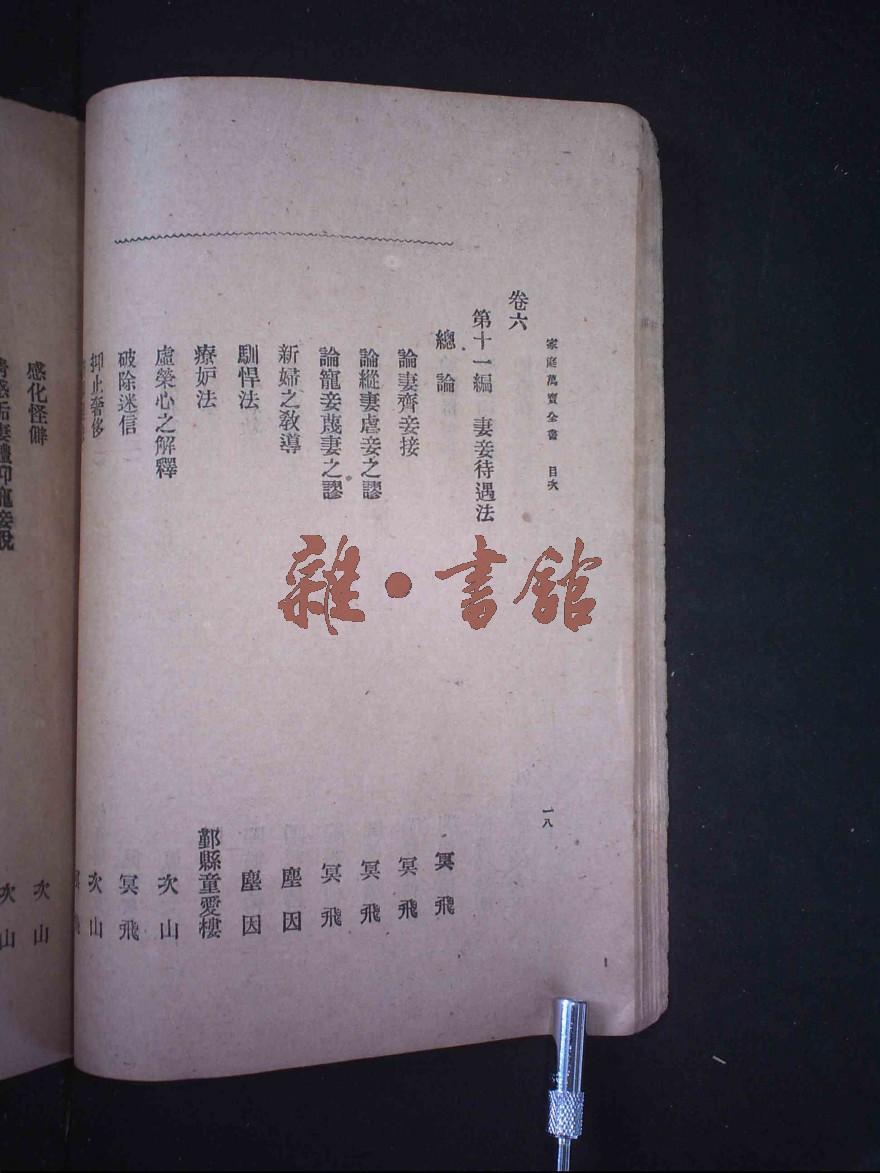 家庭萬寶全書　目次
一八
卷六
第十一編　妻妾待遇法
總論　冥飛
論妻齊妾接　冥飛
論縱妻虐妾之謬　冥飛
論寵妾蔑妻之謬　冥飛
新婦之敎導　塵因
馴悍法　塵因
療妒法　鄞縣童愛樓
虛榮心之解釋　次山
破除迷信　冥飛
抑止奢侈　次山
感化怪僻　次山
次山
雜·書館